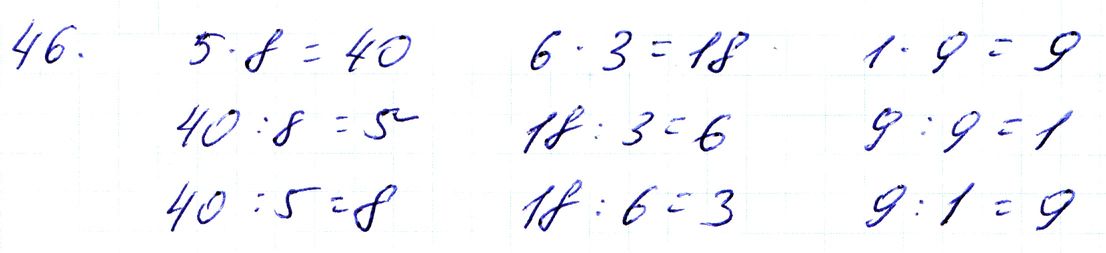 46. 5·8=40 6·3=18 1·9=9
40:8=5 18:3=6 9:9=1
40:5=8 18:6=3 9:1=9